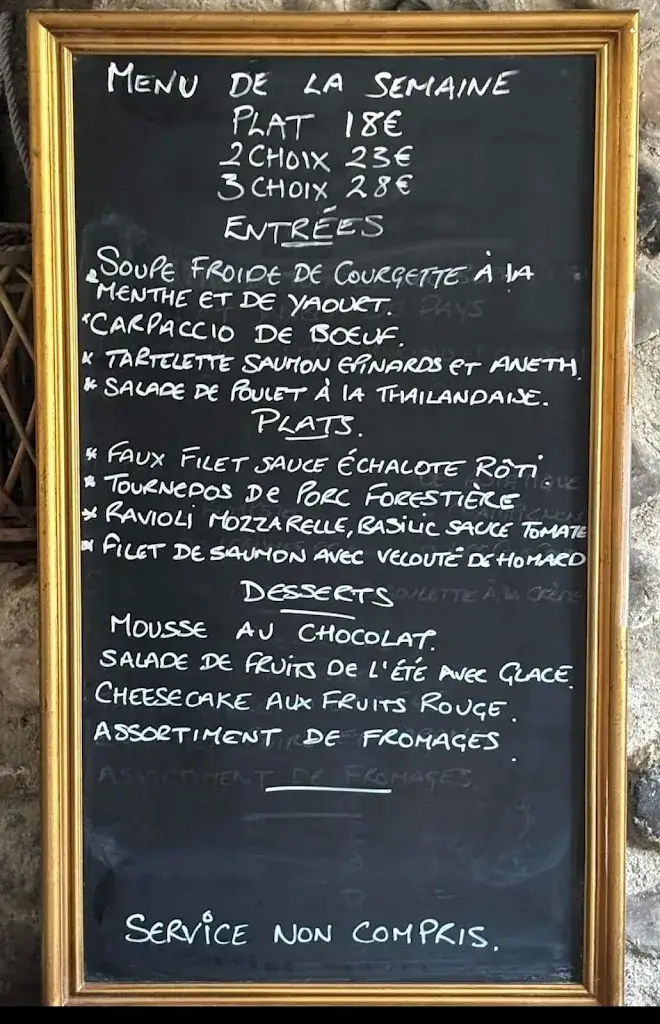 MENU DE LA SEMAINE
PLAT 18€
2 CHOIX 23€
3 CHOIX 28€
ENTRÉES
* SOUPE FROIDE DE COURGETTE À LA
MENTHE ET DE YAOURT.
* CARPACCIO DE BOEUF.
* TARTELETTE SAUMON EPINARDS ET ANETH.
* SALADE DE POULET À LA THAILANDAISE.
PLATS.
* FAUX FILET SAUCE ÉCHALOTE RÔTI
* TOURNEDOS DE PORC FORESTIERE
* RAVIOLI MOZZARELLE, BASILIC SAUCE TOMATE
* FILET DE SAUMON AVEC VELOUTÉ DE HOMARD
DESSERTS
MOUSSE AU CHOCOLAT.
SALADE DE FRUITS DE L'ÉTÉ AVEC GLACE.
CHEESECAKE AUX FRUITS ROUGE.
ASSORTIMENT DE FROMAGES.
ASSORTIMENT DE FROMAGES
SERVICE NON COMPRIS.